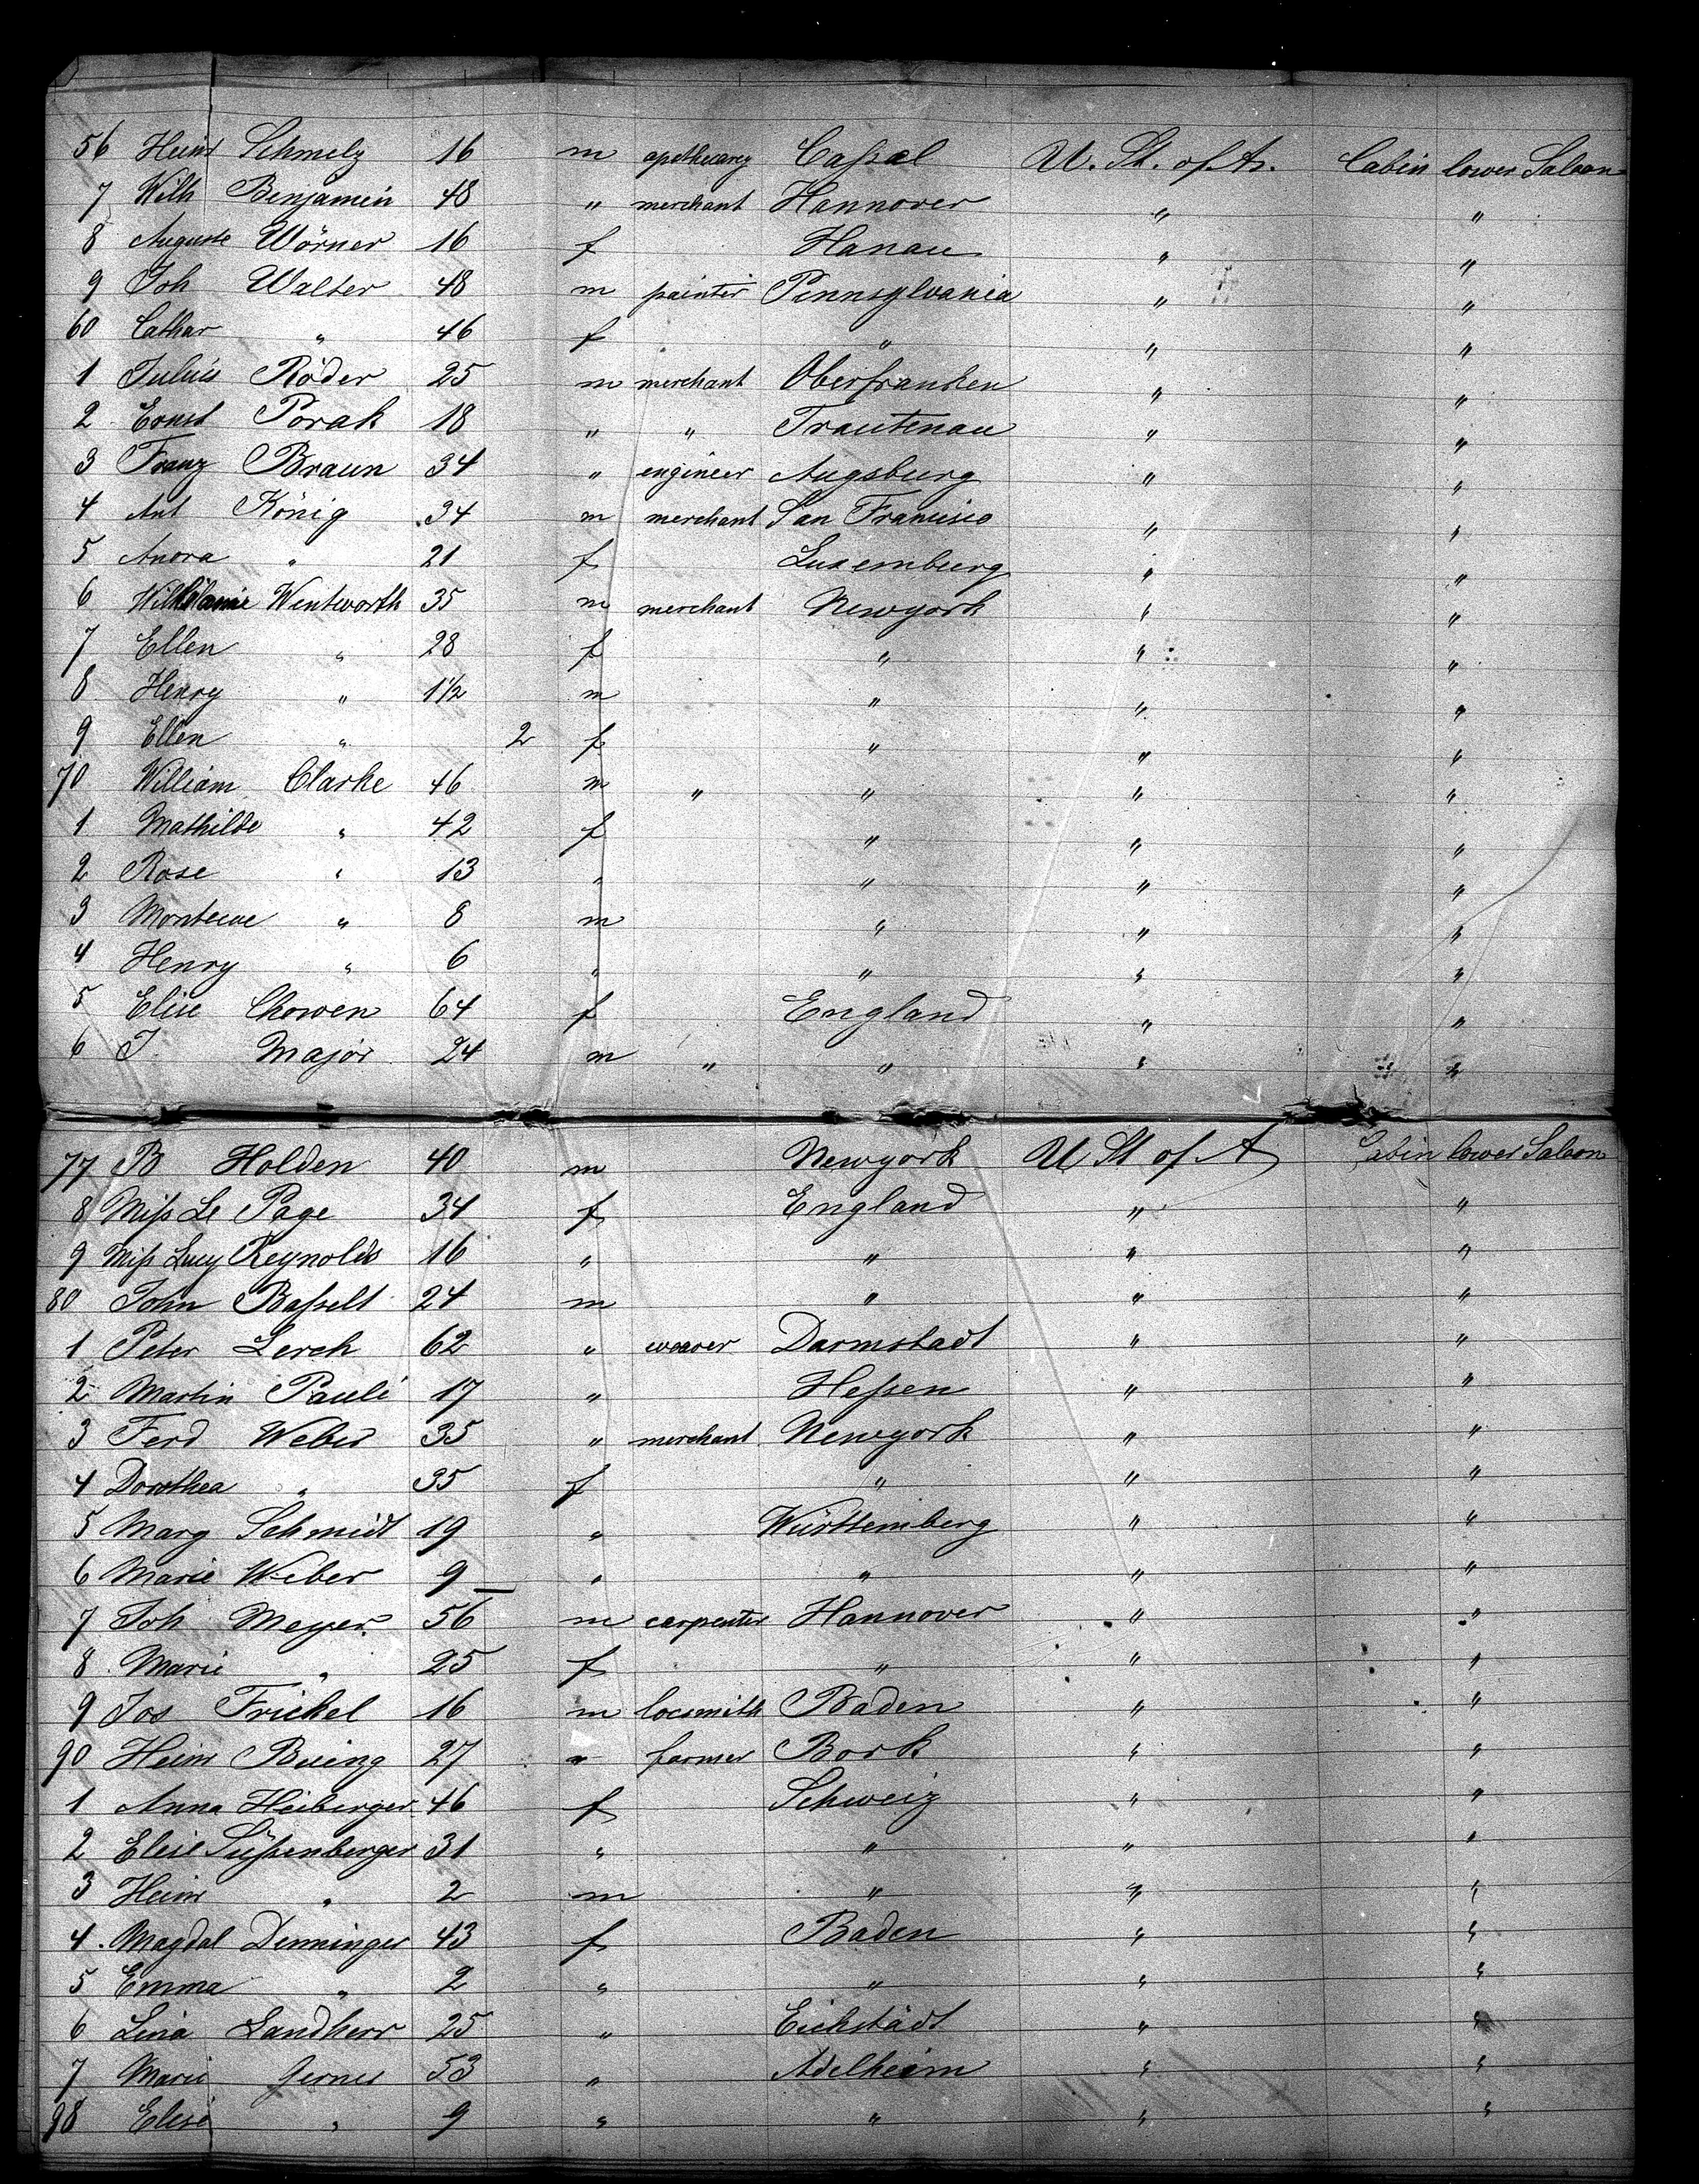 56 Heinr Schmelz 16 m apothecary Caßel U. St. of A. Cabin lower Saloon
7 Wilh Benjamin 48 " merchant Hannover " "
8 Auguste Wörner 16 f Hanau " "
9 Joh Walter 48 m painter Pennsylvania " "
60 Cathar " 46 f " " "
1 Julius Röder 25 m merchant Oberfranken " "
2 Ernst Porak 18 " " Trautenau " "
3 Franz Braun 34 " engineer Augsburg " "
4 Ant König 34 m merchant San Francisco " "
5 " 21 f Luxemburg " "
6 Wentworth 35 m merchant Newyork " "
7 Ellen " 28 f " " "
8 Henry " 1½ m " " "
9 Ellen " 2 f " " "
70 William Clarke 46 m " " " "
1 Mathilde " 42 f " " "
2 Rose " 13 " " " "
3 " 8 m " " "
4 Henry " 6 " " " "
5 Elise Chowen 64 f England " "
6 J. Major 24 m " " " "
77 B Holden 40 m Newyork U St of A Cabin lower Saloon
8 Miß Le Page 34 f England " "
9 Miß Lucy Reynolds 16 " " " "
80 John Baßelt 24 m " " "
1 Peter Lerch 62 " weaver Darmstadt " "
2 Martin Pauli 17 " Heßen " "
3 Ferd Weber 35 " merchant Newyork " "
4 Dorothea " 35 f " " "
5 Marg Schmidt 19 " Württemberg " "
6 Marie Weber 9 " " " "
7 Joh Meyer 56 m carpenter Hannover " "
8 Marie " 25 f " " "
9 Jos Frickel 16 m locsmith Baden " "
90 Heinr Buing 27 " farmer Bork " "
1 Anna Heiberger 46 f Schweiz " "
2 Elise Süßenberger 31 " " " "
3 Heinr " 2 m " " "
4 Magdal Denninger 43 f Baden " "
5 Emma " 2 " " " "
6 Lina Landherr 25 " Eichstädt " "
7 Marie Gerner 53 " Adelheim " "
98 Elise " 9 " " " "